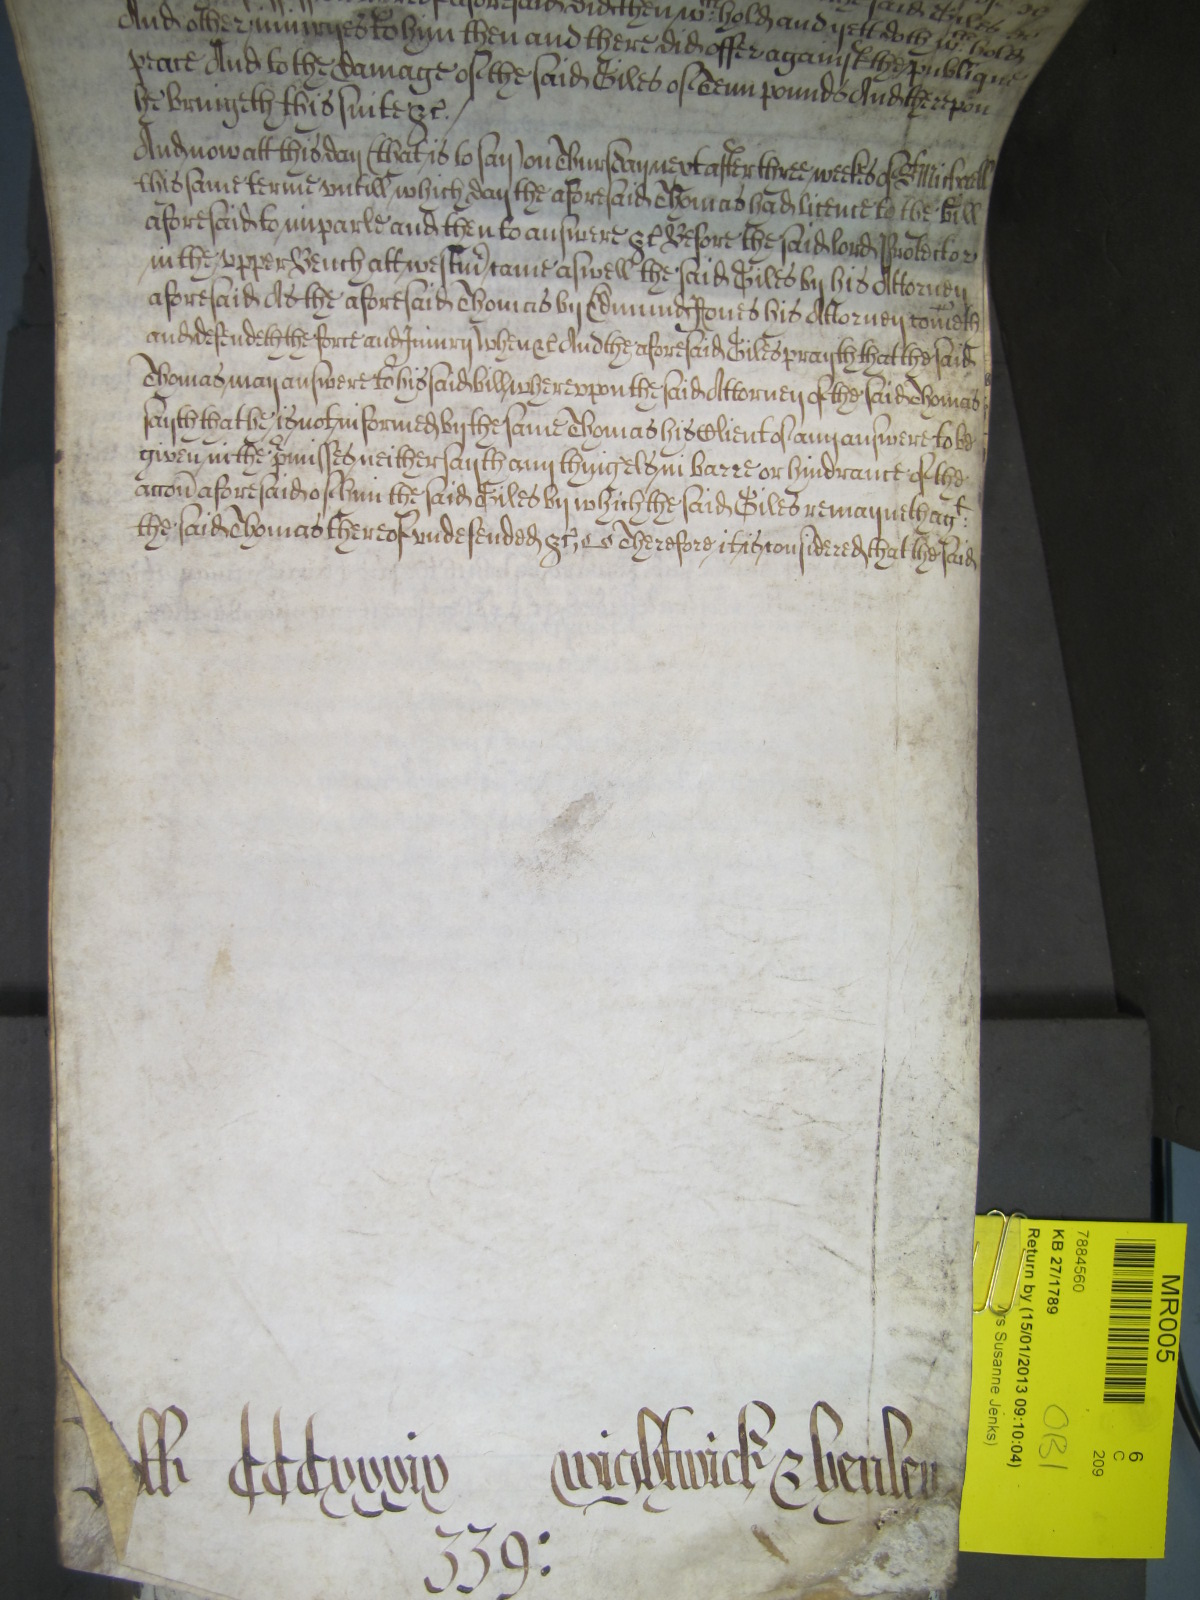 aforesaid did then wth hold and yett doth wth hold
And other iniuryes to him then and there did offer against the publique
peace And to the damage of the said Giles of Tenn pounds And therepon
he bringeth this suite &c. /
And now att this day (that is to say) on Thursday next after three weekes of St Michaell
this same terme vntill which day the aforesaid Thomas had licence to the bill
aforesaid to imparle and then to answere &c Before the said lord Protector
in the vpper Bench att westmr came aswell the said Giles by his Attorney
aforesaid As the aforesaid Thomas by Edmund Jones his Attorney cometh
and defendeth the force and Iniury when &c And the aforesaid Giles prayth that the said
Thomas may answere to his said bill wherevpon the said Attorney of the said Thomas
sayth that he is not informed by the same Thomas his Client of any answere to be
given in the pmisses neither sayth any thing els in barre or hindrance of the
accon aforesaid of him the said Giles by which the said Giles remayneth agt:
the said Thomas thereof vndefended &c, Therefore it is considered that the said
CCCxxxix wightwick & henley
339:
MR005
6
C
209
7884560
KB 27/1789
Return by (15/01/2013 09:10:04)
Susanne Jenks)
OB1